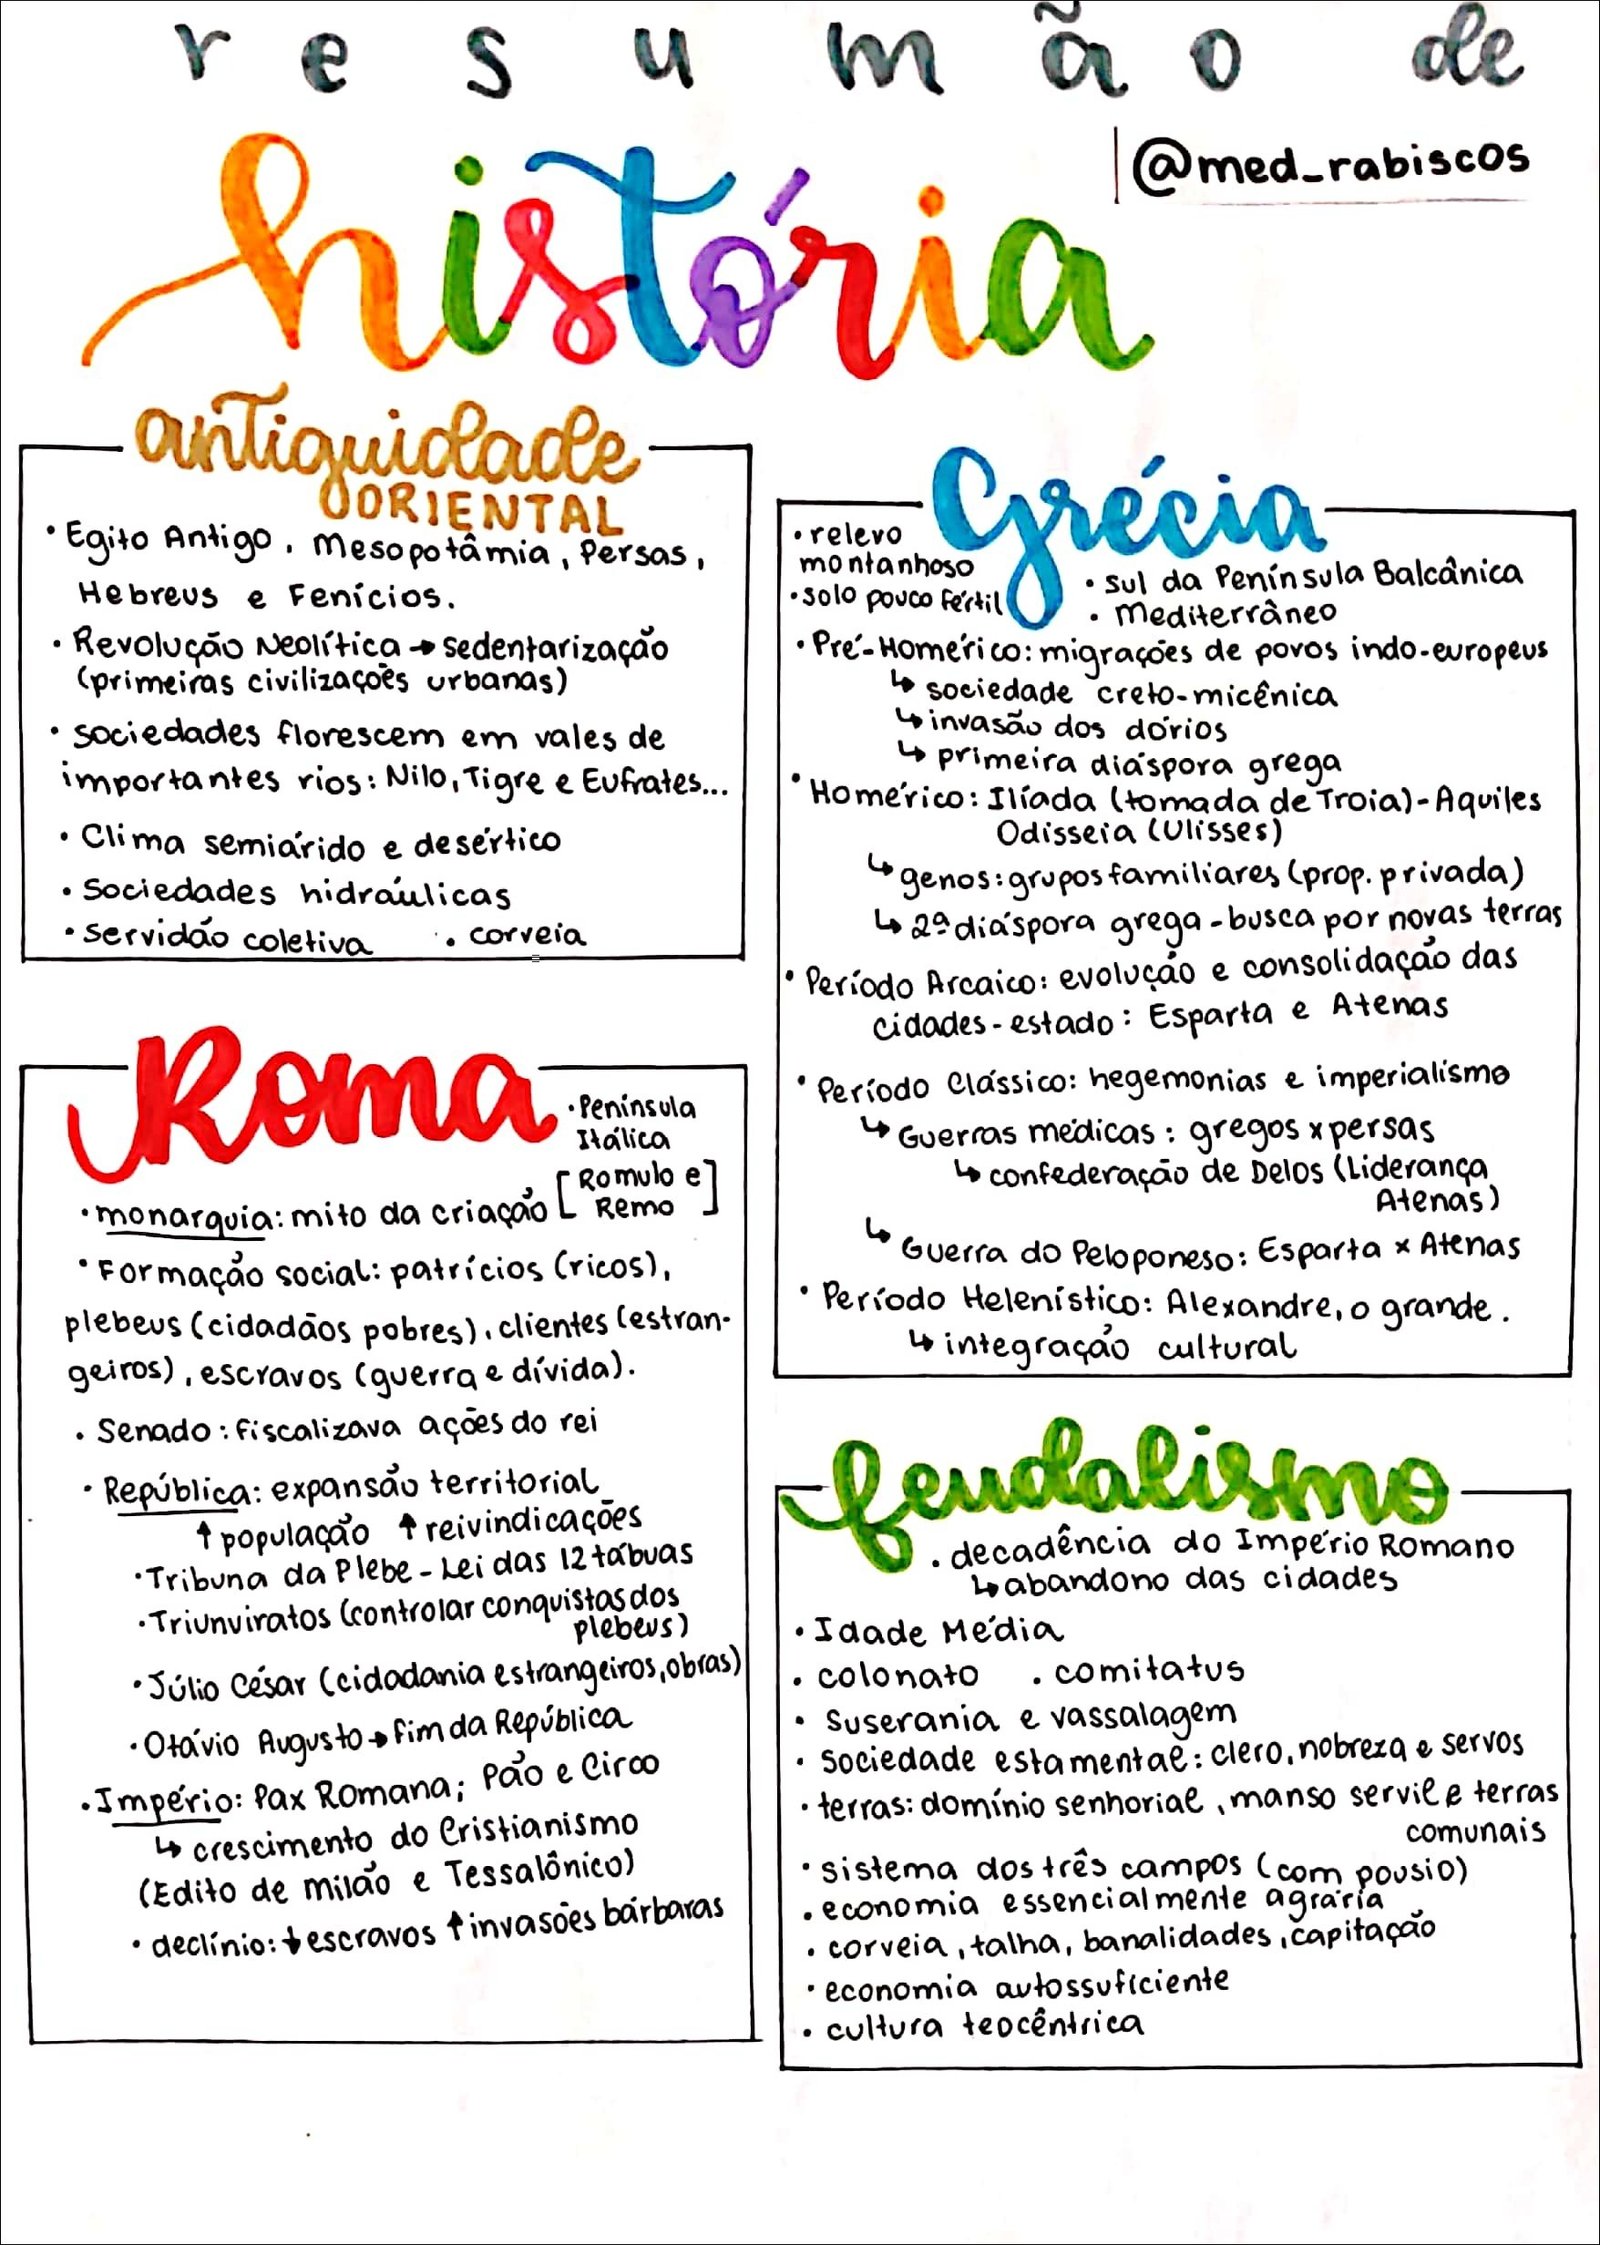 resumão de
história
@med_rabiscos
antiguidade
ORIENTAL
• Egito Antigo, Mesopotâmia, Persas,
Hebreus e Fenícios.
• Revolução Neolítica → sedentarização
(primeiras civilizações urbanas)
• sociedades florescem em vales de
importantes rios: Nilo, Tigre e Eufrates...
• Clima semiárido e desértico
• Sociedades hidráulicas
• servidão coletiva • corveia
Roma
• Península
Itálica
• monarquia: mito da criação [Romulo e
Remo]
• Formação social: patrícios (ricos),
plebeus (cidadãos pobres), clientes (estran-
geiros), escravos (guerra e dívida).
• Senado: fiscalizava ações do rei
• República: expansão territorial
↑ população ↑ reivindicações
• Tribuna da Plebe - Lei das 12 tábuas
• Triunviratos (controlar conquistas dos
plebeus)
• Júlio César (cidadania estrangeiros, obras)
• Otávio Augusto → fim da República
• Império: Pax Romana; Pão e Circo
↳ crescimento do Cristianismo
(Edito de milão e Tessalônico)
• declínio: ↓ escravos ↑ invasões bárbaras
Grécia
• relevo
montanhoso
• solo pouco fértil
• sul da Península Balcânica
• mediterrâneo
• Pré-Homérico: migrações de povos indo-europeus
↳ sociedade creto-micênica
↳ invasão dos dórios
↳ primeira diáspora grega
• Homérico: Ilíada (tomada de Troia) - Aquiles
Odisseia (Ulisses)
↳ genos: grupos familiares (prop. privada)
↳ 2ª diáspora grega - busca por novas terras
• Período Arcaico: evolução e consolidação das
cidades-estado: Esparta e Atenas
• Período Clássico: hegemonias e imperialismo
↳ Guerras médicas: gregos x persas
↳ confederação de Delos (Liderança
Atenas)
↳ Guerra do Peloponeso: Esparta x Atenas
• Período Helenístico: Alexandre, o grande.
↳ integração cultural
feudalismo
• decadência do Império Romano
↳ abandono das cidades
• Idade Média
• colonato • comitatus
• Suserania e vassalagem
• Sociedade estamental: clero, nobreza e servos
• terras: domínio senhorial, manso servil e terras
comunais
• sistema dos três campos (com pousio)
• economia essencialmente agrária
• corveia, talha, banalidades, capitação
• economia autossuficiente
• cultura teocêntrica